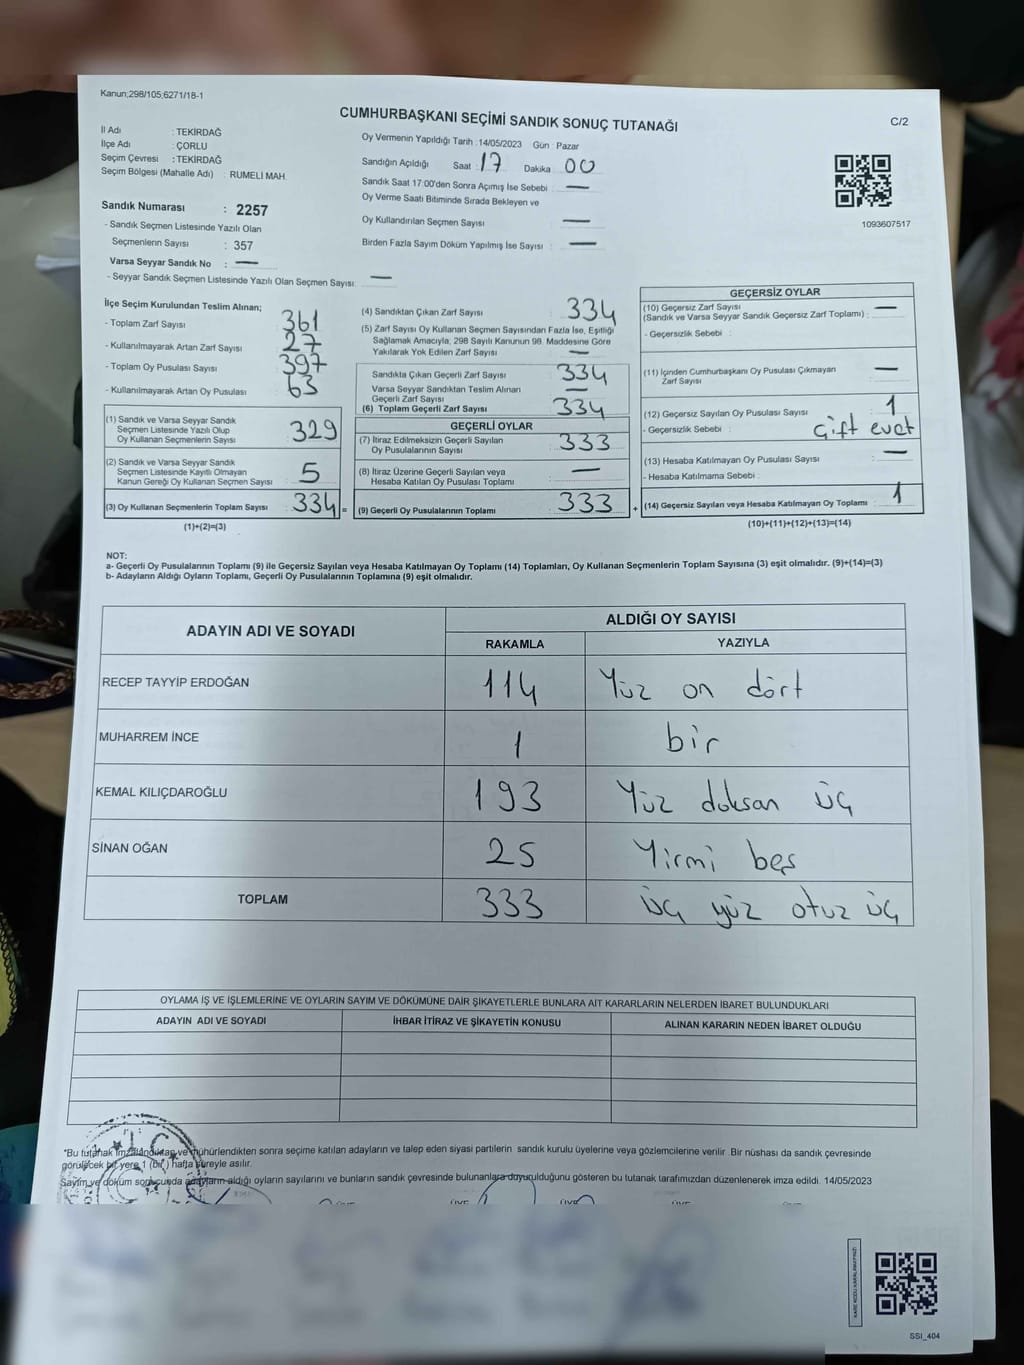 Kanun;298/105;6271/18-1
CUMHURBAŞKANI SEÇİMİ SANDIK SONUÇ TUTANAĞI
C/2
İl Adı : TEKİRDAĞ
İlçe Adı : ÇORLU
Seçim Çevresi : TEKİRDAĞ
Seçim Bölgesi (Mahalle Adı) : RUMELİ MAH.
Oy Vermenin Yapıldığı Tarih :14/05/2023 Gün : Pazar
Sandığın Açıldığı Saat : 17 Dakika : 00
Sandık Saat 17:00'den Sonra Açımış İse Sebebi : —
Oy Verme Saati Bitiminde Sırada Bekleyen ve
Oy Kullandırılan Seçmen Sayısı : —
Birden Fazla Sayım Döküm Yapılmış İse Sayısı : —
1093607517
Sandık Numarası : 2257
- Sandık Seçmen Listesinde Yazılı Olan
Seçmenlerin Sayısı : 357
Varsa Seyyar Sandık No : —
- Seyyar Sandık Seçmen Listesinde Yazılı Olan Seçmen Sayısı: —
İlçe Seçim Kurulundan Teslim Alınan;
- Toplam Zarf Sayısı : 361
- Kullanılmayarak Artan Zarf Sayısı : 27
- Toplam Oy Pusulası Sayısı : 397
- Kullanılmayarak Artan Oy Pusulası : 63
(1) Sandık ve Varsa Seyyar Sandık
Seçmen Listesinde Yazılı Olup
Oy Kullanan Seçmenlerin Sayısı : 329
(2) Sandık ve Varsa Seyyar Sandık
Seçmen Listesinde Kayıtlı Olmayan
Kanun Gereği Oy Kullanan Seçmen Sayısı : 5
(3) Oy Kullanan Seçmenlerin Toplam Sayısı : 334 =
(1)+(2)=(3)
(4) Sandıktan Çıkan Zarf Sayısı : 334
(5) Zarf Sayısı Oy Kullanan Seçmen Sayısından Fazla İse, Eşitliği
Sağlamak Amacıyla, 298 Sayılı Kanunun 98. Maddesine Göre
Yakılarak Yok Edilen Zarf Sayısı : —
Sandıkta Çıkan Geçerli Zarf Sayısı : 334
Varsa Seyyar Sandıktan Teslim Alınan
Geçerli Zarf Sayısı : —
(6) Toplam Geçerli Zarf Sayısı : 334
GEÇERLİ OYLAR
(7) İtiraz Edilmeksizin Geçerli Sayılan
Oy Pusulalarının Sayısı : 333
(8) İtiraz Üzerine Geçerli Sayılan veya
Hesaba Katılan Oy Pusulası Toplamı : —
(9) Geçerli Oy Pusulalarının Toplamı : 333 +
GEÇERSİZ OYLAR
(10) Geçersiz Zarf Sayısı
(Sandık ve Varsa Seyyar Sandık Geçersiz Zarf Toplamı) : —
- Geçersizlik Sebebi :
(11) İçinden Cumhurbaşkanı Oy Pusulası Çıkmayan
Zarf Sayısı : —
(12) Geçersiz Sayılan Oy Pusulası Sayısı : 1
- Geçersizlik Sebebi : Çift evet
(13) Hesaba Katılmayan Oy Pusulası Sayısı : —
- Hesaba Katılmama Sebebi :
(14) Geçersiz Sayılan veya Hesaba Katılmayan Oy Toplamı : 1
(10)+(11)+(12)+(13)=(14)
NOT:
a- Geçerli Oy Pusulalarının Toplamı (9) ile Geçersiz Sayılan veya Hesaba Katılmayan Oy Toplamı (14) Toplamları, Oy Kullanan Seçmenlerin Toplam Sayısına (3) eşit olmalıdır. (9)+(14)=(3)
b- Adayların Aldığı Oyların Toplamı, Geçerli Oy Pusulalarının Toplamına (9) eşit olmalıdır.
ADAYIN ADI VE SOYADI
ALDIĞI OY SAYISI
RAKAMLA YAZIYLA
RECEP TAYYİP ERDOĞAN 114 Yüz on dört
MUHARREM İNCE 1 bir
KEMAL KILIÇDAROĞLU 193 Yüz doksan üç
SİNAN OĞAN 25 Yirmi beş
TOPLAM 333 üç yüz otuz üç
OYLAMA İŞ VE İŞLEMLERİNE VE OYLARIN SAYIM VE DÖKÜMÜNE DAİR ŞİKAYETLERLE BUNLARA AİT KARARLARIN NELERDEN İBARET BULUNDUKLARI
ADAYIN ADI VE SOYADI İHBAR İTİRAZ VE ŞİKAYETİN KONUSU ALINAN KARARIN NEDEN İBARET OLDUĞU
*Bu tutanak imzalandıktan ve mühürlendikten sonra seçime katılan adayların ve talep eden siyasi partilerin sandık kurulu üyelerine veya gözlemcilerine verilir. Bir nüshası da sandık çevresinde
görülecek bir yere 1 (bir) hafta süreyle asılır.
Sayım ve döküm sonucunda adayların aldığı oyların sayılarını ve bunların sandık çevresinde bulunanlara duyurulduğunu gösteren bu tutanak tarafımızdan düzenlenerek imza edildi. 14/05/2023
SSI_404